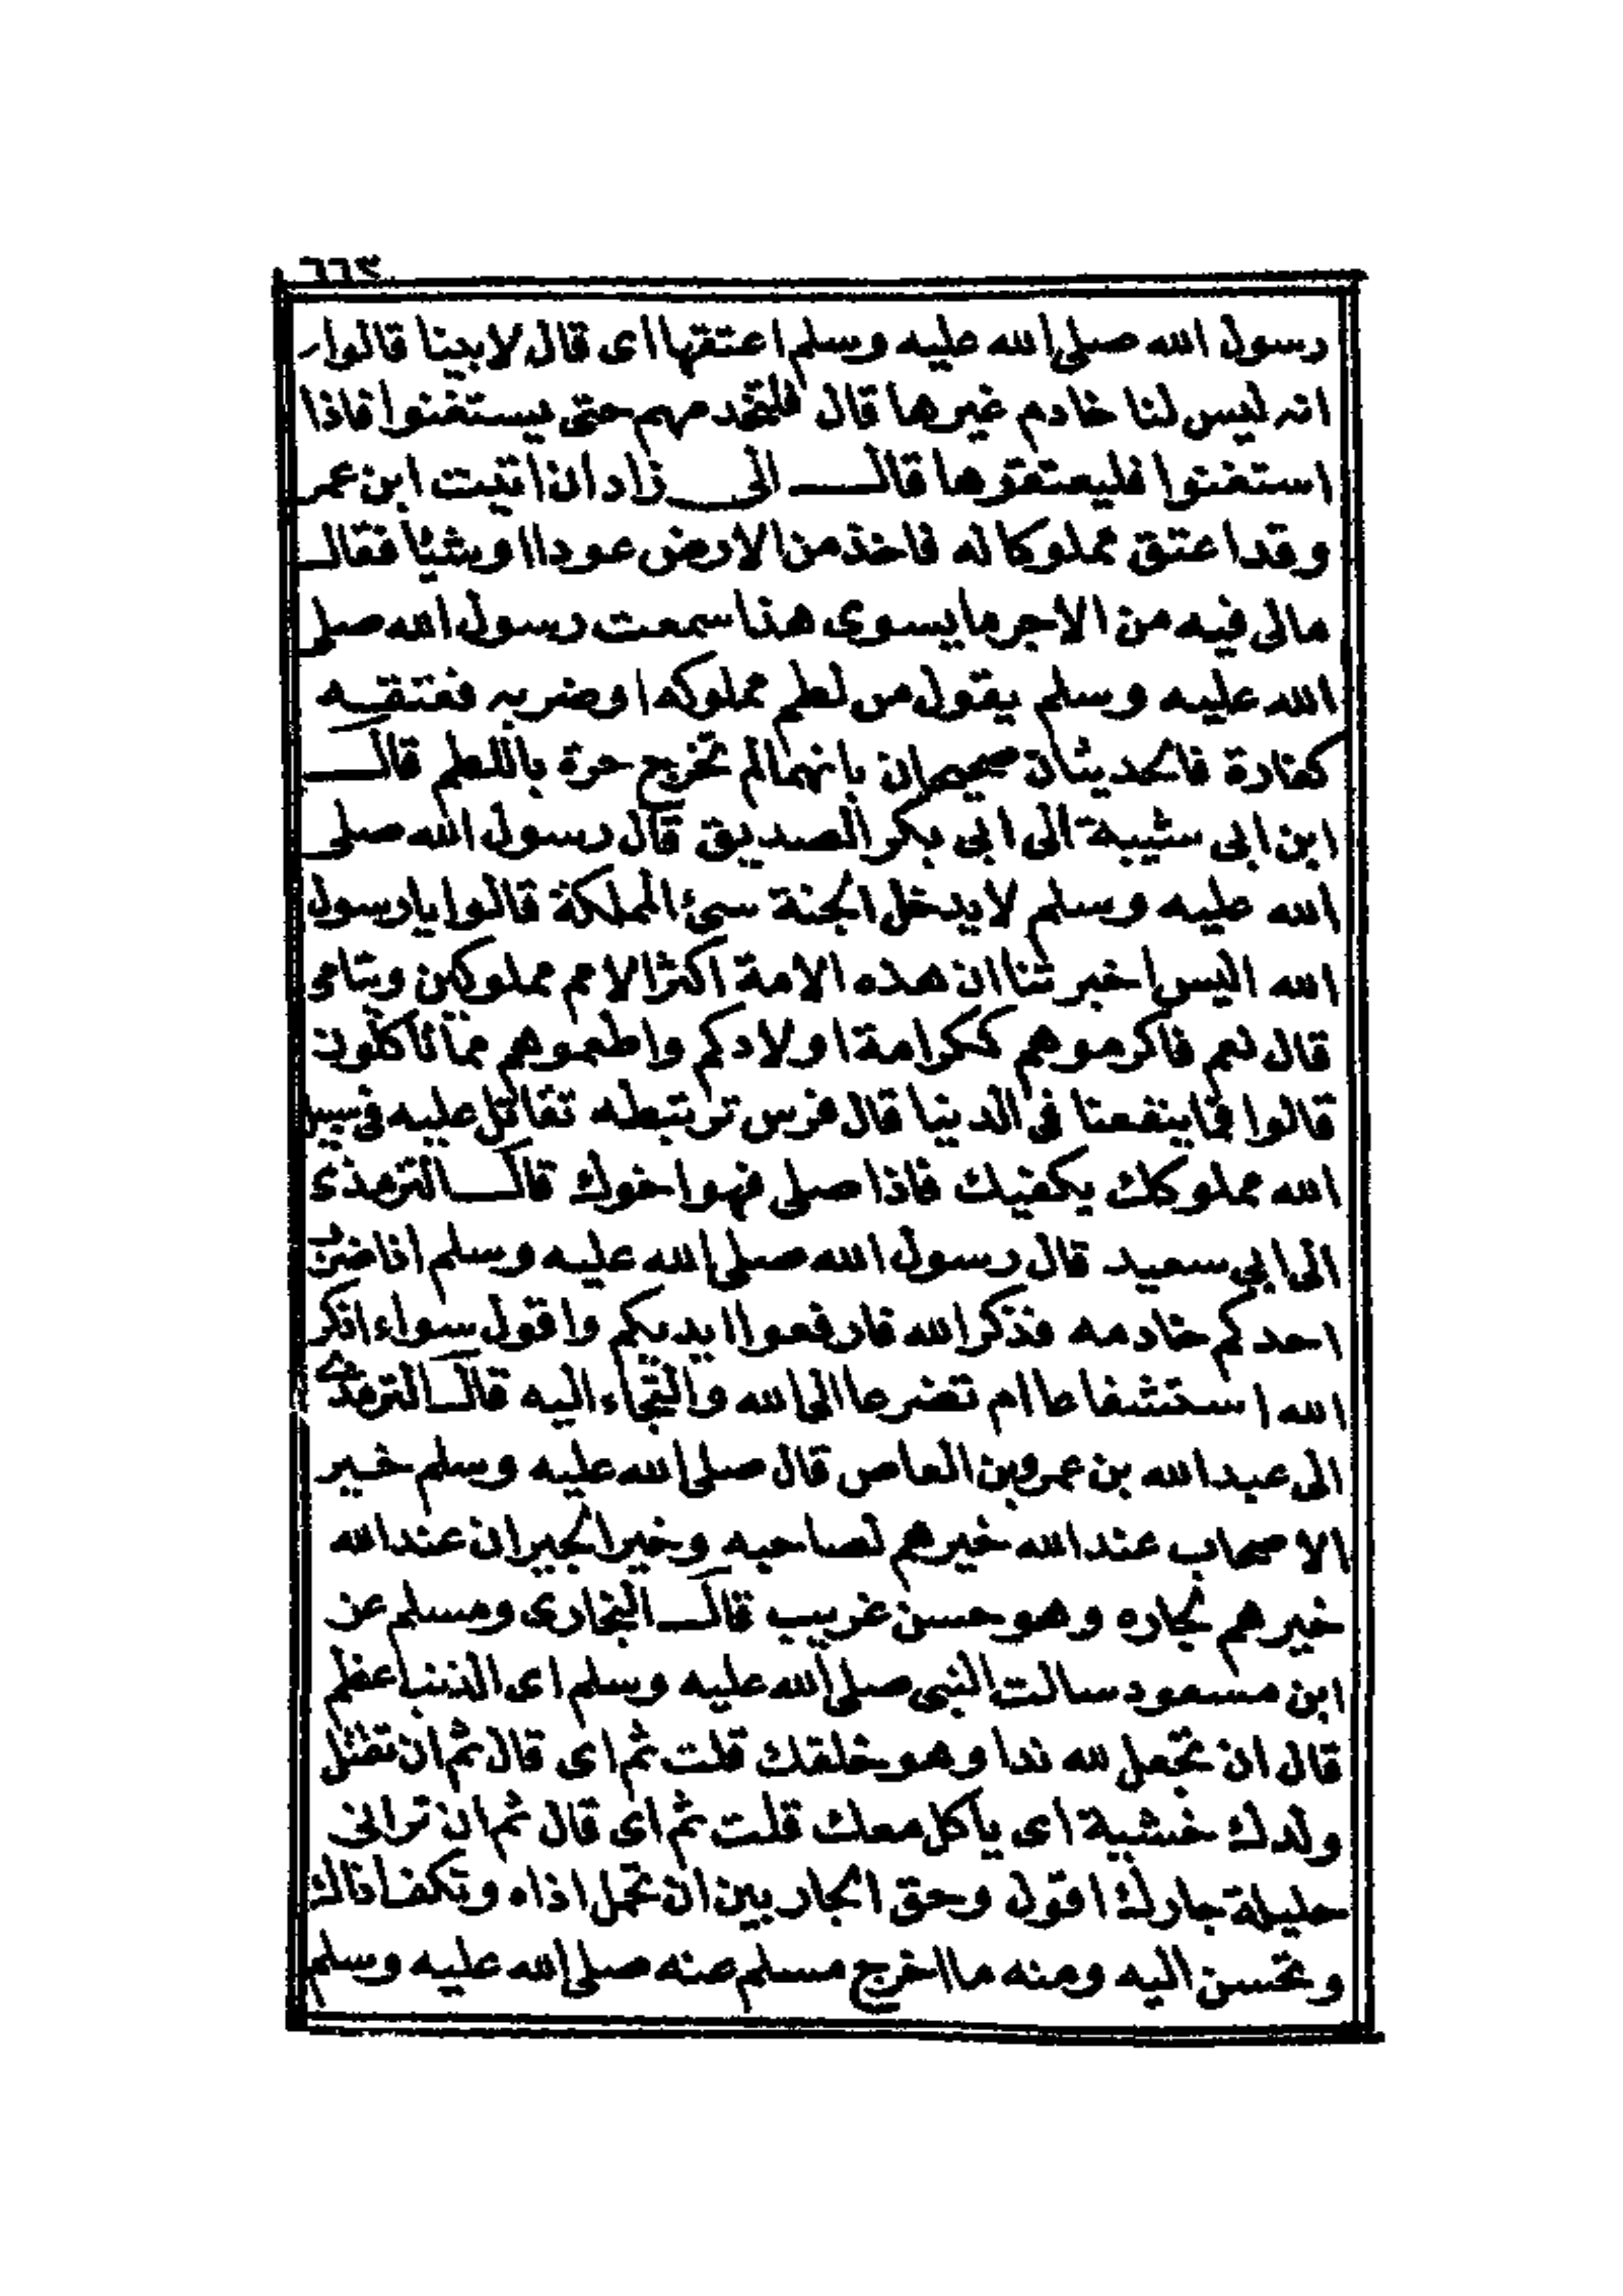 ٦٦٤
رسول الله صلى الله عليه وسلم اعتقها اى قال لا بينا قالوا
انه ليس لنا خادم غيرها قال فلتخدمهم حتى يستغنوا فاذا
استغنوا فليعتقوها قال الى زاد ان اتيت ابن عمر
وقد اعتق مملوكا له فاخذ من الارض عودا او شيئا فقال
مالى فيه من الاجر ما يسوى هذا سمعت رسول الله صلى
الله عليه وسلم يقول من لطم مملوكه او ضربه فعتقه
كفارة فالحديثان صحيحان بانهما لم تخرج حرة باللطم قال
ابن ابى شيبة الى ابي بكر الصديق قال رسول الله صلى
الله عليه وسلم لا يدخل الجنة سىئ الملكة قالوا يا رسول
الله اليس اخبرتنا ان هذه الامة اكثر الامم مملوكين ويتامى
قال نعم فاكرموهم ككرامة اولادكم واطعموهم مما تاكلون
قالوا فما ينفعنا فى الدنيا قال فرس ترتبطه تقاتل عليه فى سبيل
الله مملوكك يكفيك فاذا صلى فهو اخوك قال الترمذى
الى ابي سعيد قال رسول الله صلى الله عليه وسلم اذا ضرب
احدكم خادمه فذكر الله فارفعوا ايديكم واقول سواء اذكر
الله استشفاعا ام تضرعا الى الله والتجاء اليه قال الترمذى
الى عبد الله بن عمرو بن العاص قال صلى الله عليه وسلم خير
الاصحاب عند الله خيرهم لصاحبه وخير الجيران عند الله
خيرهم لجاره وهو حسن غريب قال البخارى ومسلم عن
ابن مسعود سالت النبي صلى الله عليه وسلم اى الذنب اعظم
قال ان تجعل لله ندا وهو خلقك قلت ثم اى قال ثم ان تقتل
ولدك خشية اى ياكل معك قلت ثم اى قال ثم ان تزانى
حليلة جارك اقول وحق الجار بين ان تحمل اذاه وتكف اذاك
وتحسن اليه ومنه ما اخرج مسلم عنه صلى الله عليه وسلم